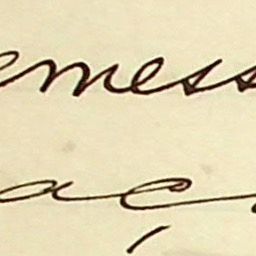 emess
aç